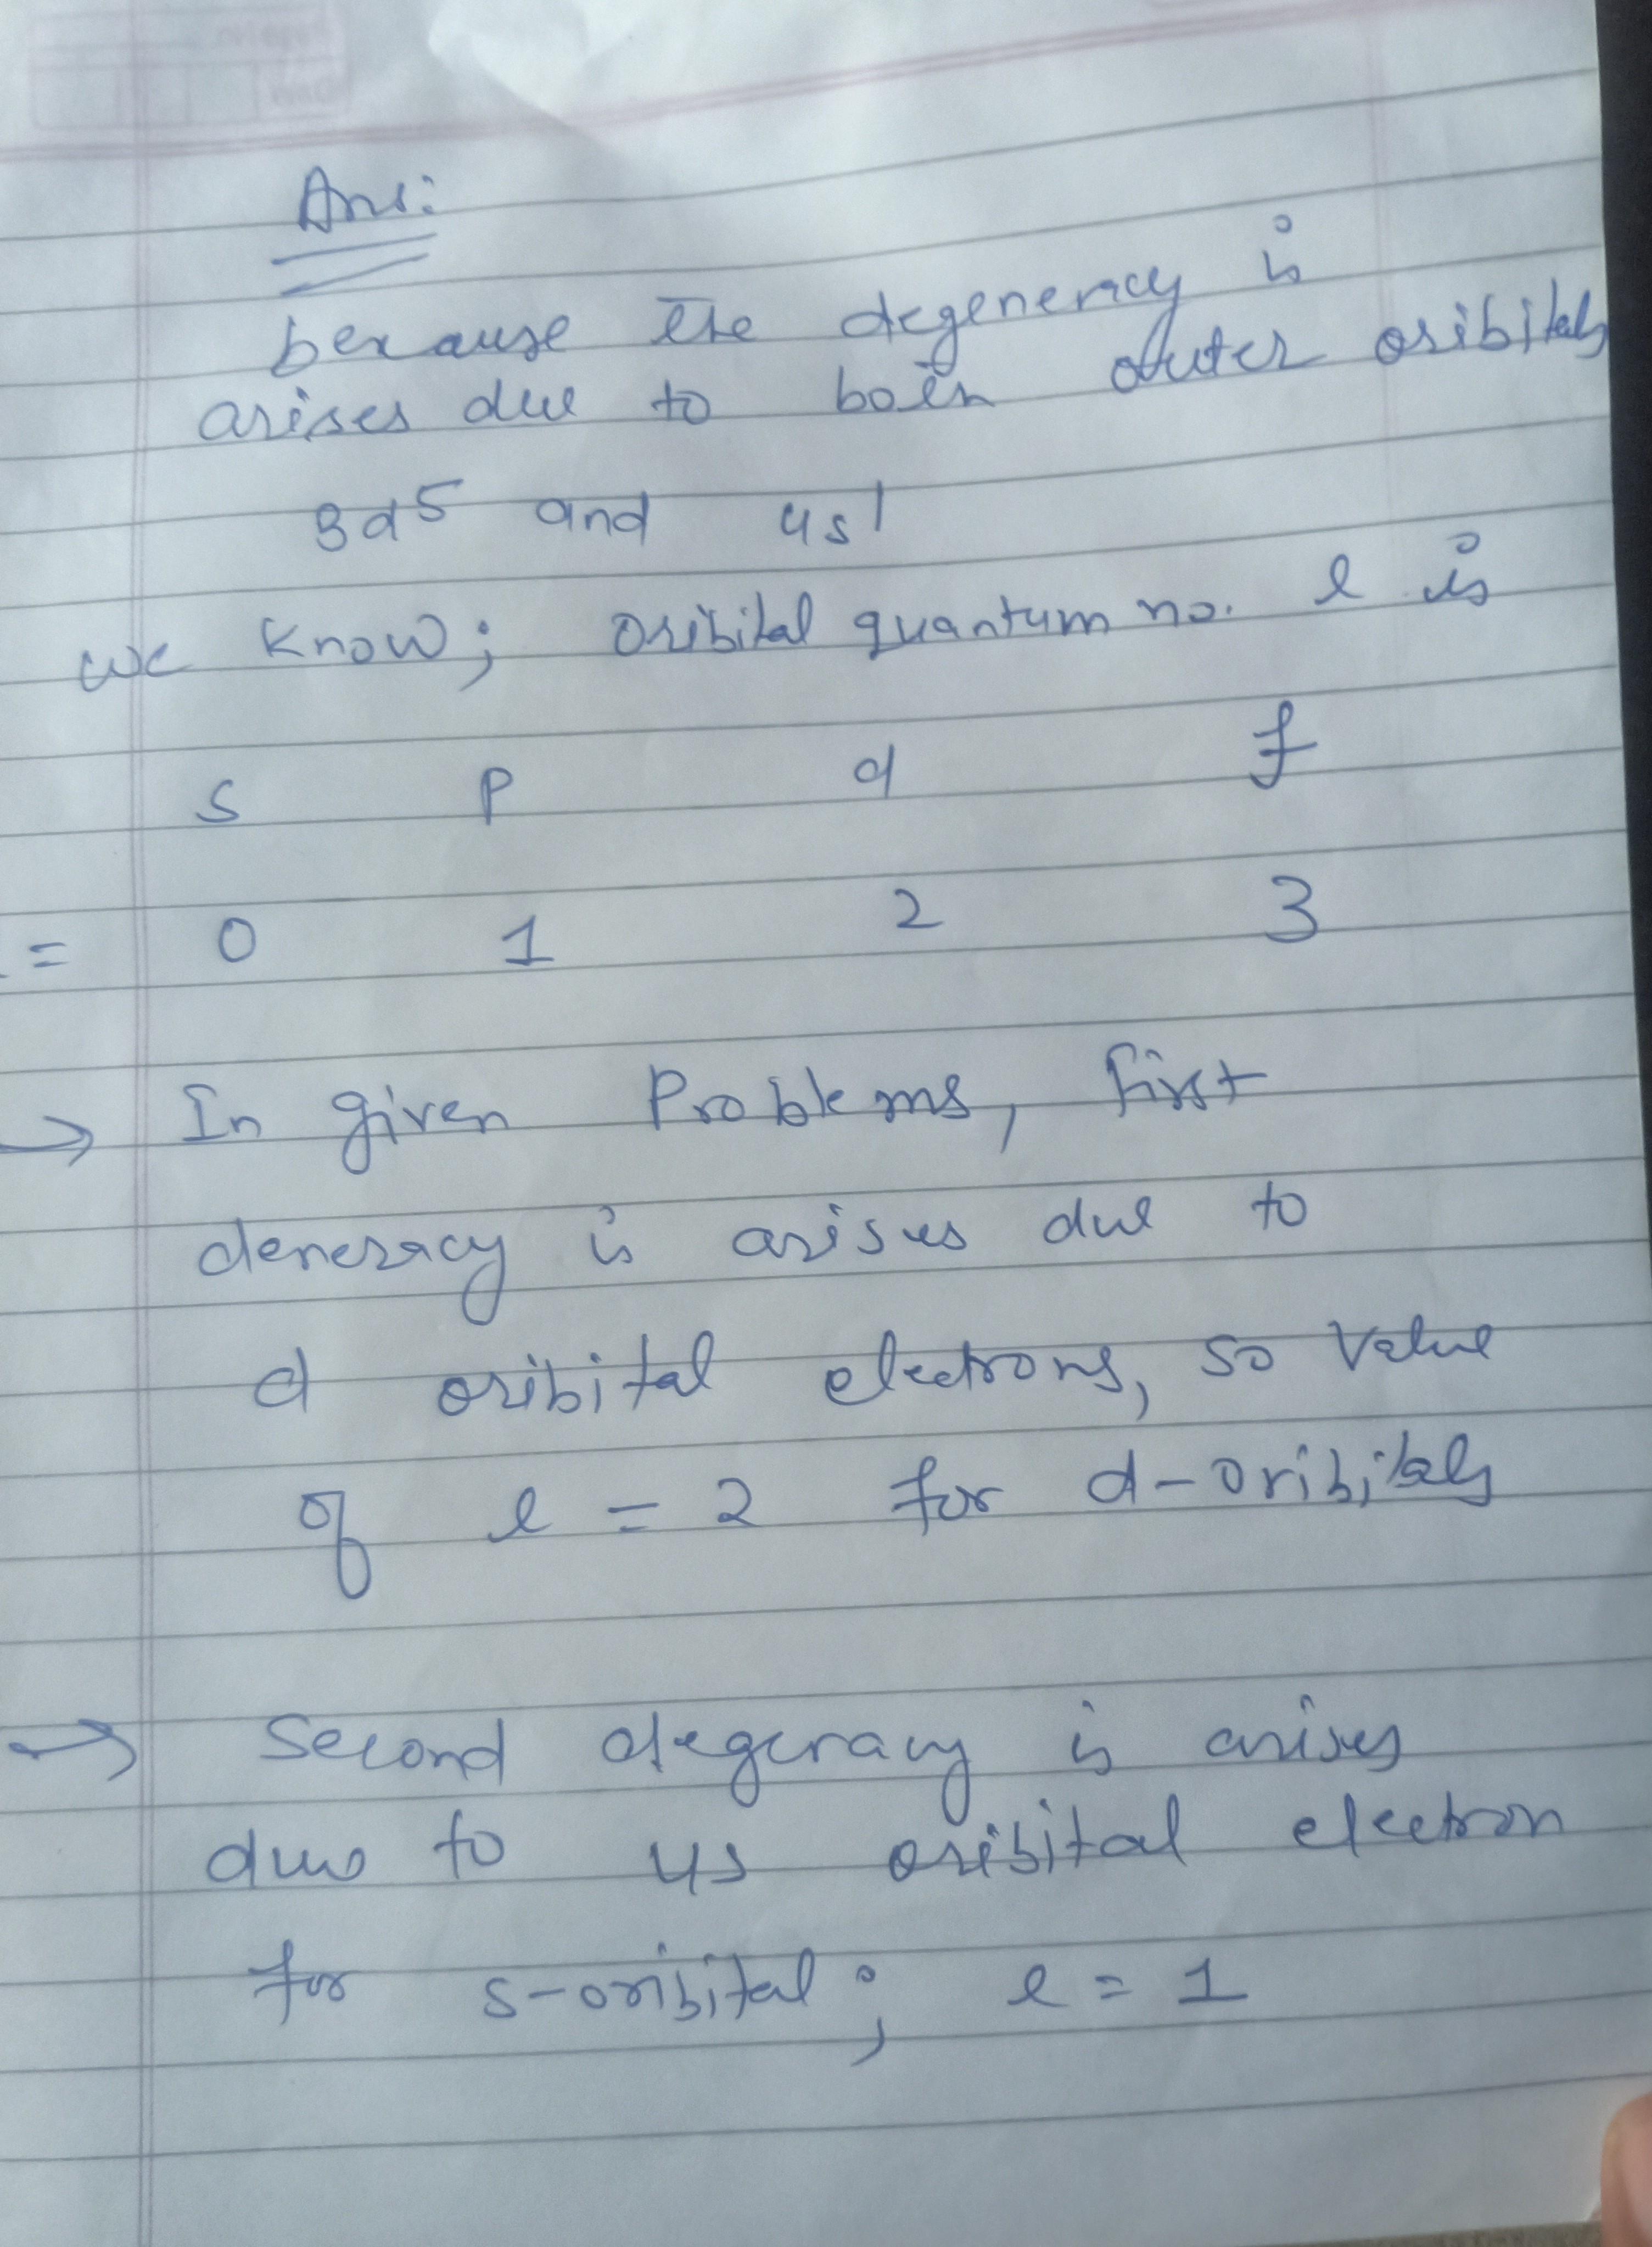 Ans:
because the degeneracy is
arises due to both outer oribitals
3d5 and 4s1
we know; oribital quantum no. l is
s p d f
= 0 1 2 3
→ In given Problems, first
deneracy is arises due to
d oribital electrons, so value
of l = 2 for d-oribitals
→ Second degeracy is arises
due to 4s oribital electron
for s-oribital; l = 1